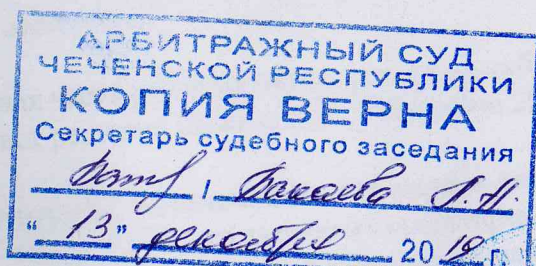 АРБИТРАЖНЫЙ СУД
ЧЕЧЕНСКОЙ РЕСПУБЛИКИ
КОПИЯ ВЕРНА
Секретарь судебного заседания
/ Бакаева
"13" декабря 2019 г.